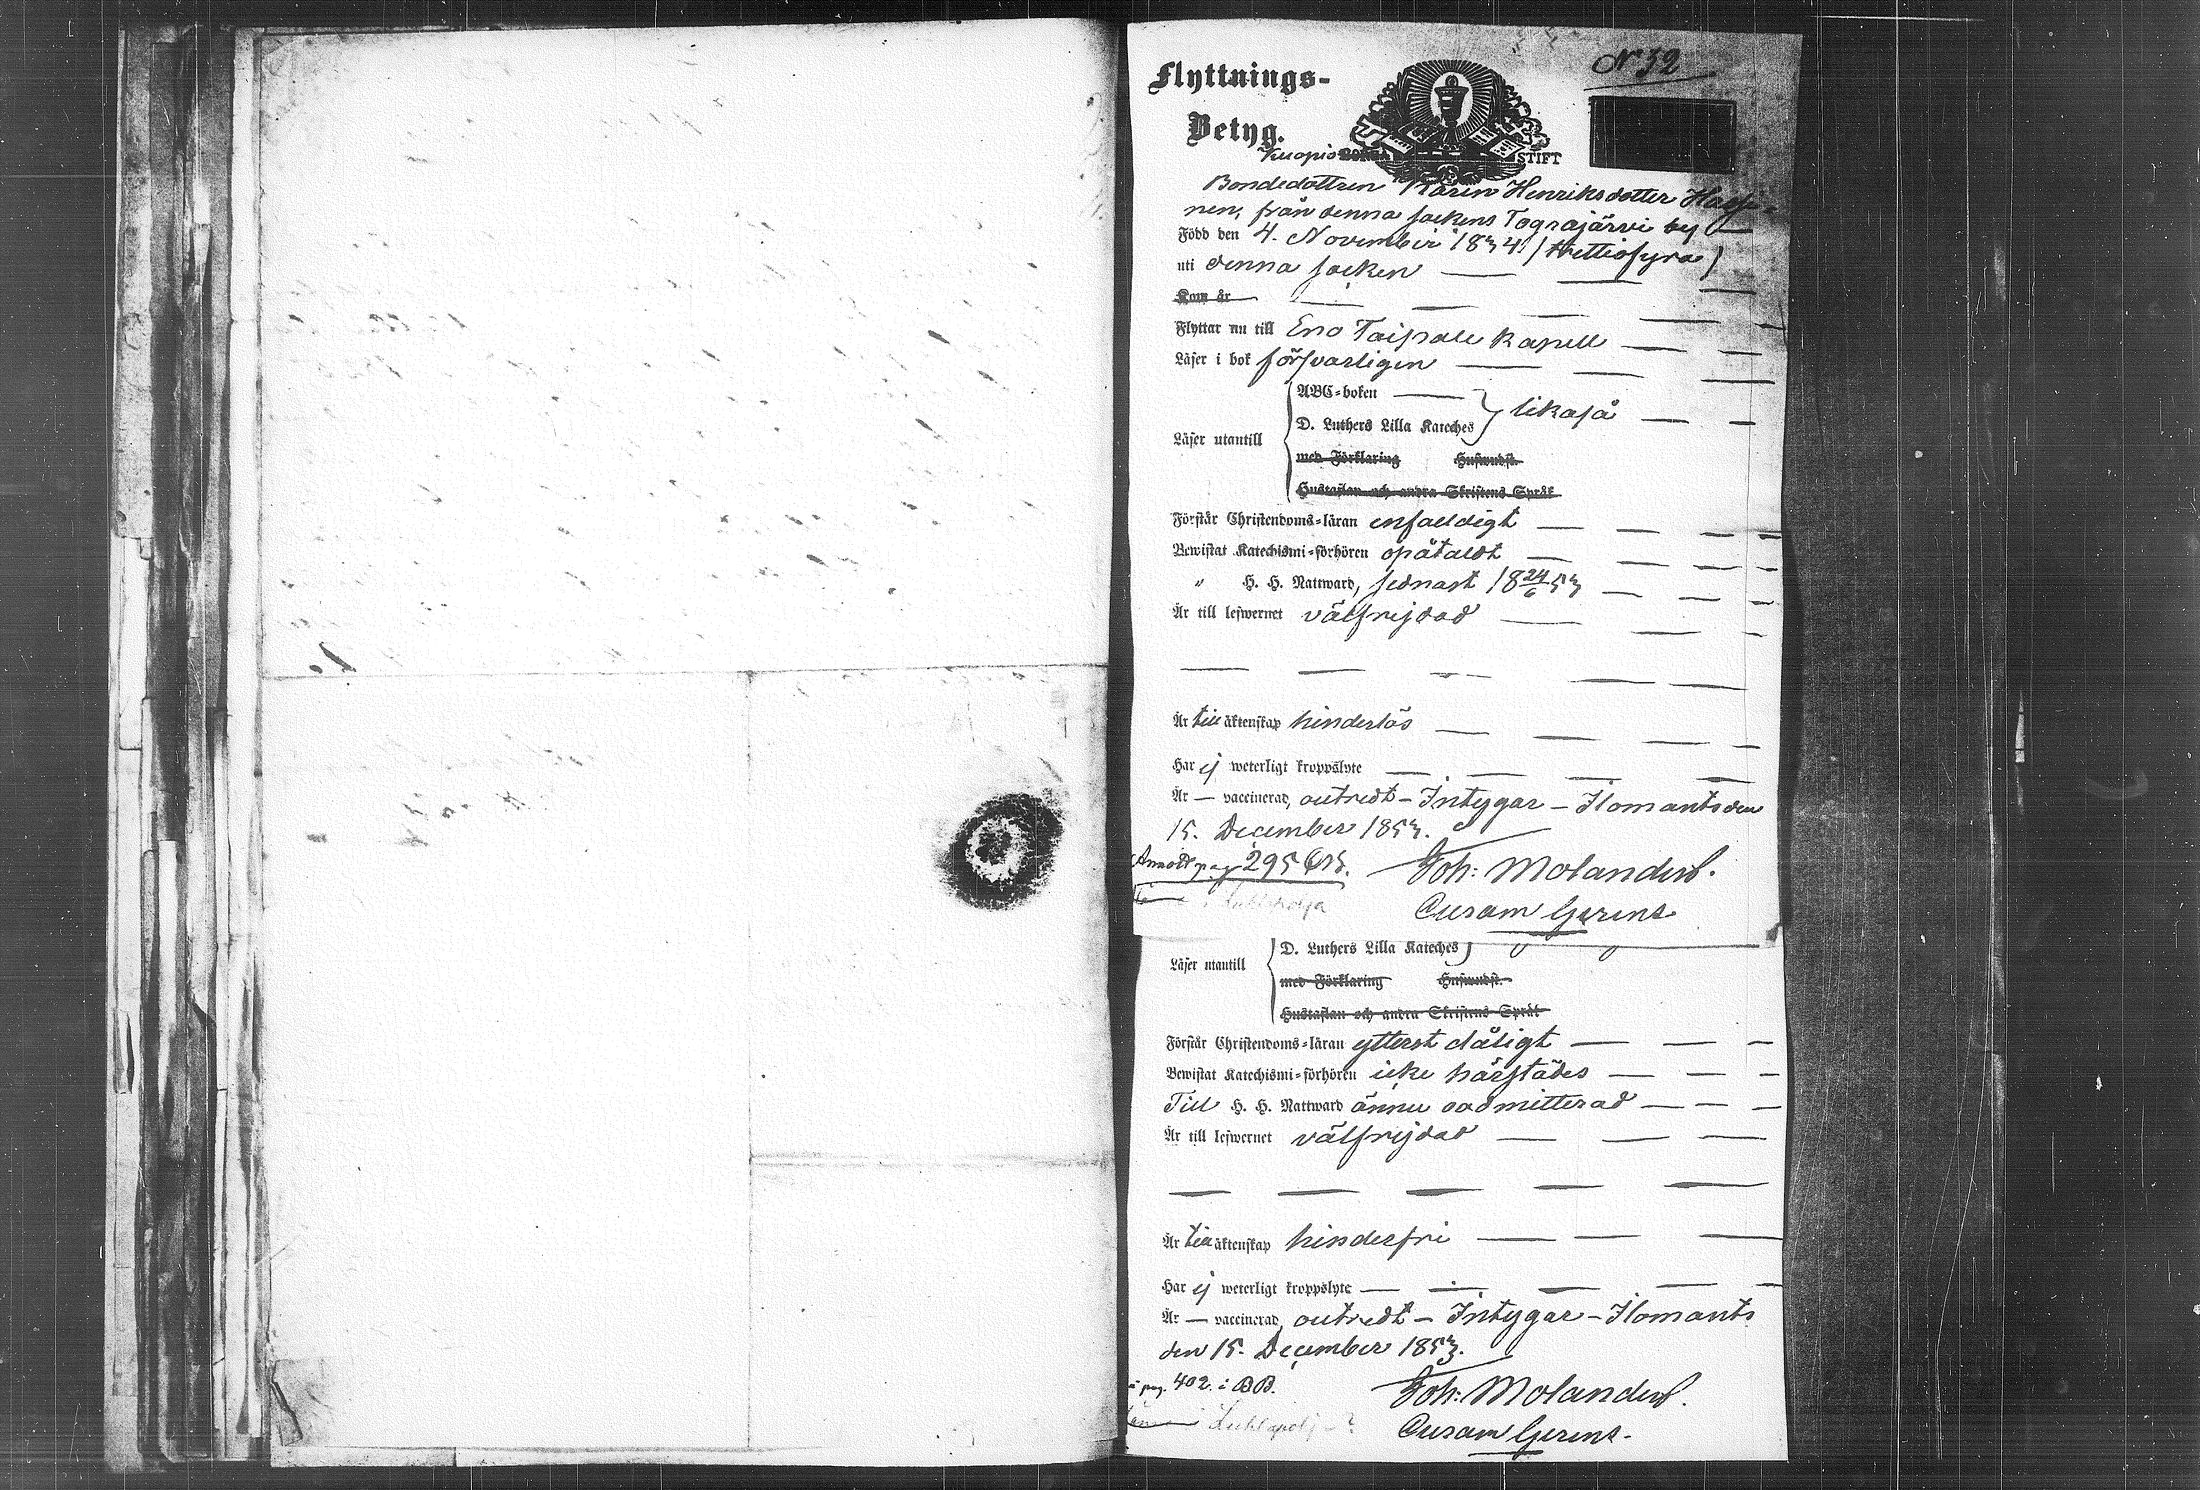 Flyttnings-
Betyg.
N 32
Kuopio STIFT
Bondedottren Karin Henriksdotter
nen, från denna sockens Tograjärvi by
Född den 4. November 1834 / trettiofyra /
uti denna socken
Kom år
Flyttar nu till Eno Taipale kapell
Läser i bok försvarligen
ABC-boken
D. Luthers Lilla Kateches } likaså
Läser utantill
med Förklaring Huswudst.
Hustaflan och andra Skriftens Språk
Förstår Christendoms-läran enfaldigt
Bewistat Katechismi-förhören opåtaldt
" H. H. Nattward, sednast 18 24/6 53
Är till lefwernet välfrejdad
Är till äktenskap hinderlös
Har ej weterligt kroppslyte
Är — vaccinerad, outredt – Intygar – Ilomants den
15. December 1853.
Annott pag 295
Joh: Molander.
Curam Gerens.
D. Luthers Lilla Kateches
Läser utantill
med Förklaring Huswudst.
Hustaflan och andra Skriftens Språk
Förstår Christendoms-läran ytterst dåligt
Bewistat Katechismi-förhören icke härstädes
Till H. H. Nattward ännu oadmitterad
Är till lefwernet välfrejdad
Är till äktenskap hinderfri
Har ej weterligt kroppslyte
Är — vaccinerad, outredt – Intygar – Ilomants
den 15. December 1853.
pag. 402 i BB.
Joh: Molander.
Curam Gerens.